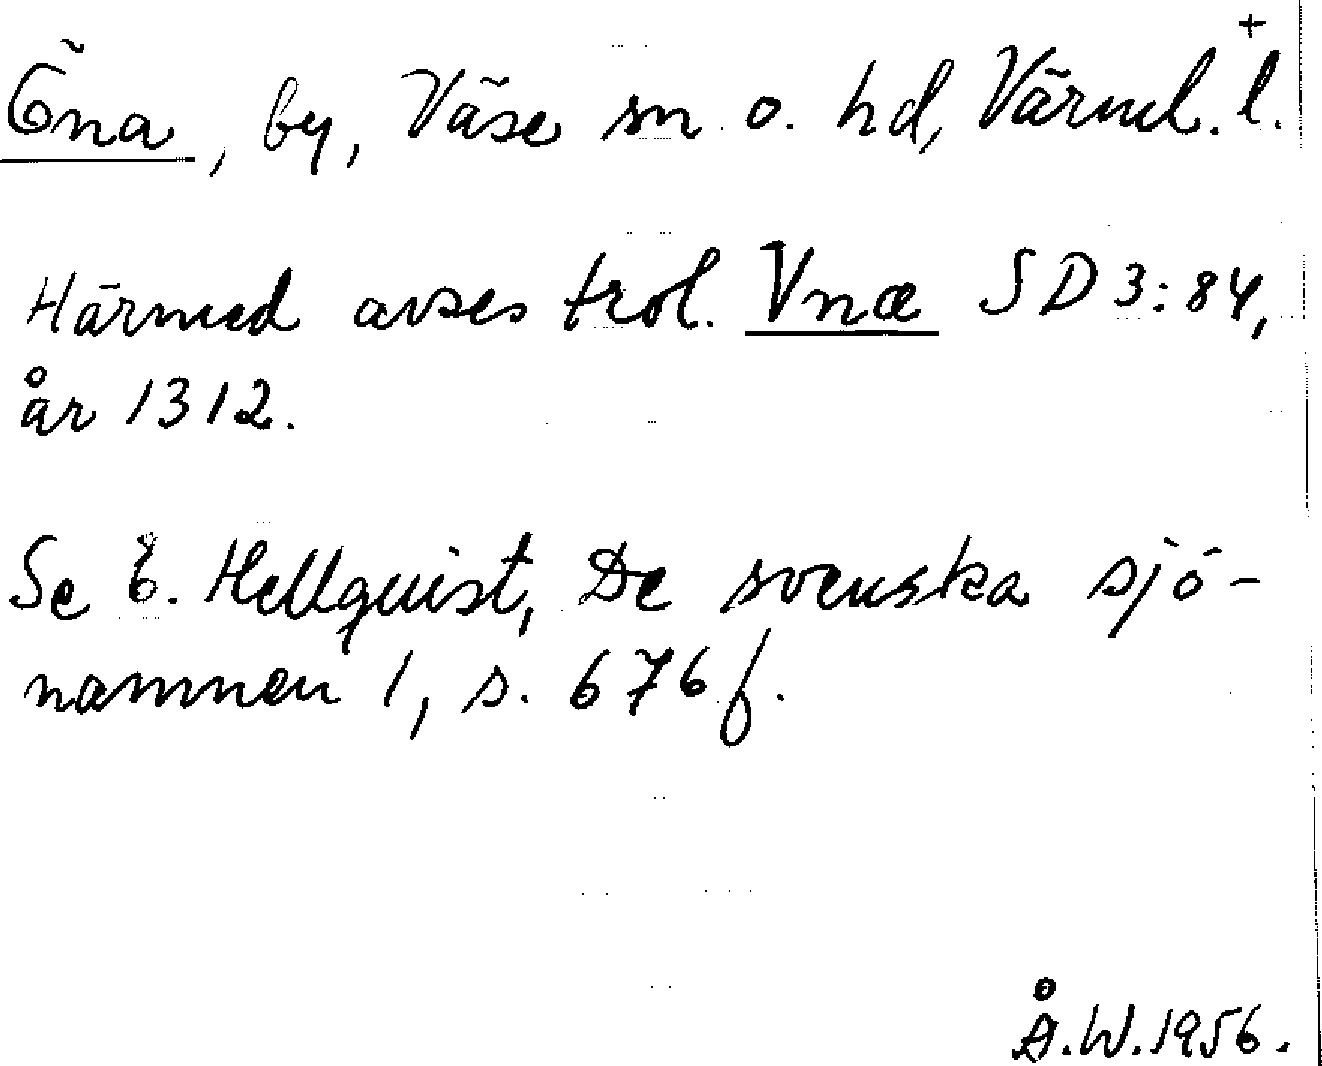 +
Öna, by, Väse sn o. hd, Värml. l.
Härmed avses trol. Vnæ SD 3:84,
år 1312.
Se E. Hellquist, De svenska sjö-
namnen 1, s. 676 f.
Å.W.1956.